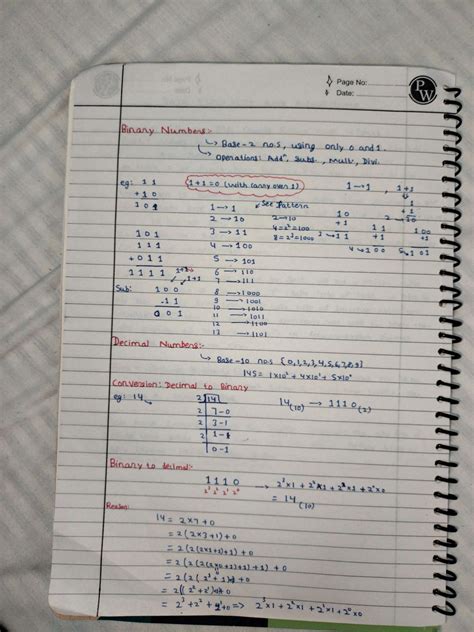 Page No:
Date:
PW
Binary Numbers:-
Base-2 no.s, using only 0 and 1.
Operations: Addⁿ, Subt., Mult., Divi.
eg: 1 1
+ 1 0
1 0 1
1+1=0 (with carry over 1)
1→1, 1+1
See Pattern
1 → 1
2 → 10
3 → 11
4 → 100
5 → 101
6 → 110
7 → 111
8 → 1000
9 → 1001
10 → 1010
11 → 1011
12 → 1100
13 → 1101
2→10
4=2²=100
8=2³=1000
10
+1
2→11
11
+1
4→100
100
+1
5→101
1 0 1
1 1 1
+ 0 1 1
1 1 1 1
1+1
Sub: 1 0 0
- 1 1
0 0 1
Decimal Numbers:-
Base-10 no.s [0,1,2,3,4,5,6,7,8,9]
145 = 1×10² + 4×10¹ + 5×10⁰
Conversion: Decimal to Binary
eg: 14
2 14
2 7-0
2 3-1
2 1-1
0-1
14(10) → 1110(2)
Binary to decimal:-
1 1 1 0
2³ 2² 2¹ 2⁰
→ 2³×1 + 2²×1 + 2¹×1 + 2⁰×0
= 14(10)
Reason:
14 = 2×7+0
= 2(2×3+1)+0
= 2(2(2×1+1)+1)+0
= 2(2(2(2×0+1)+1)+1)+0
⇒ 2³×1 + 2²×1 + 2¹×1 + 2⁰×0